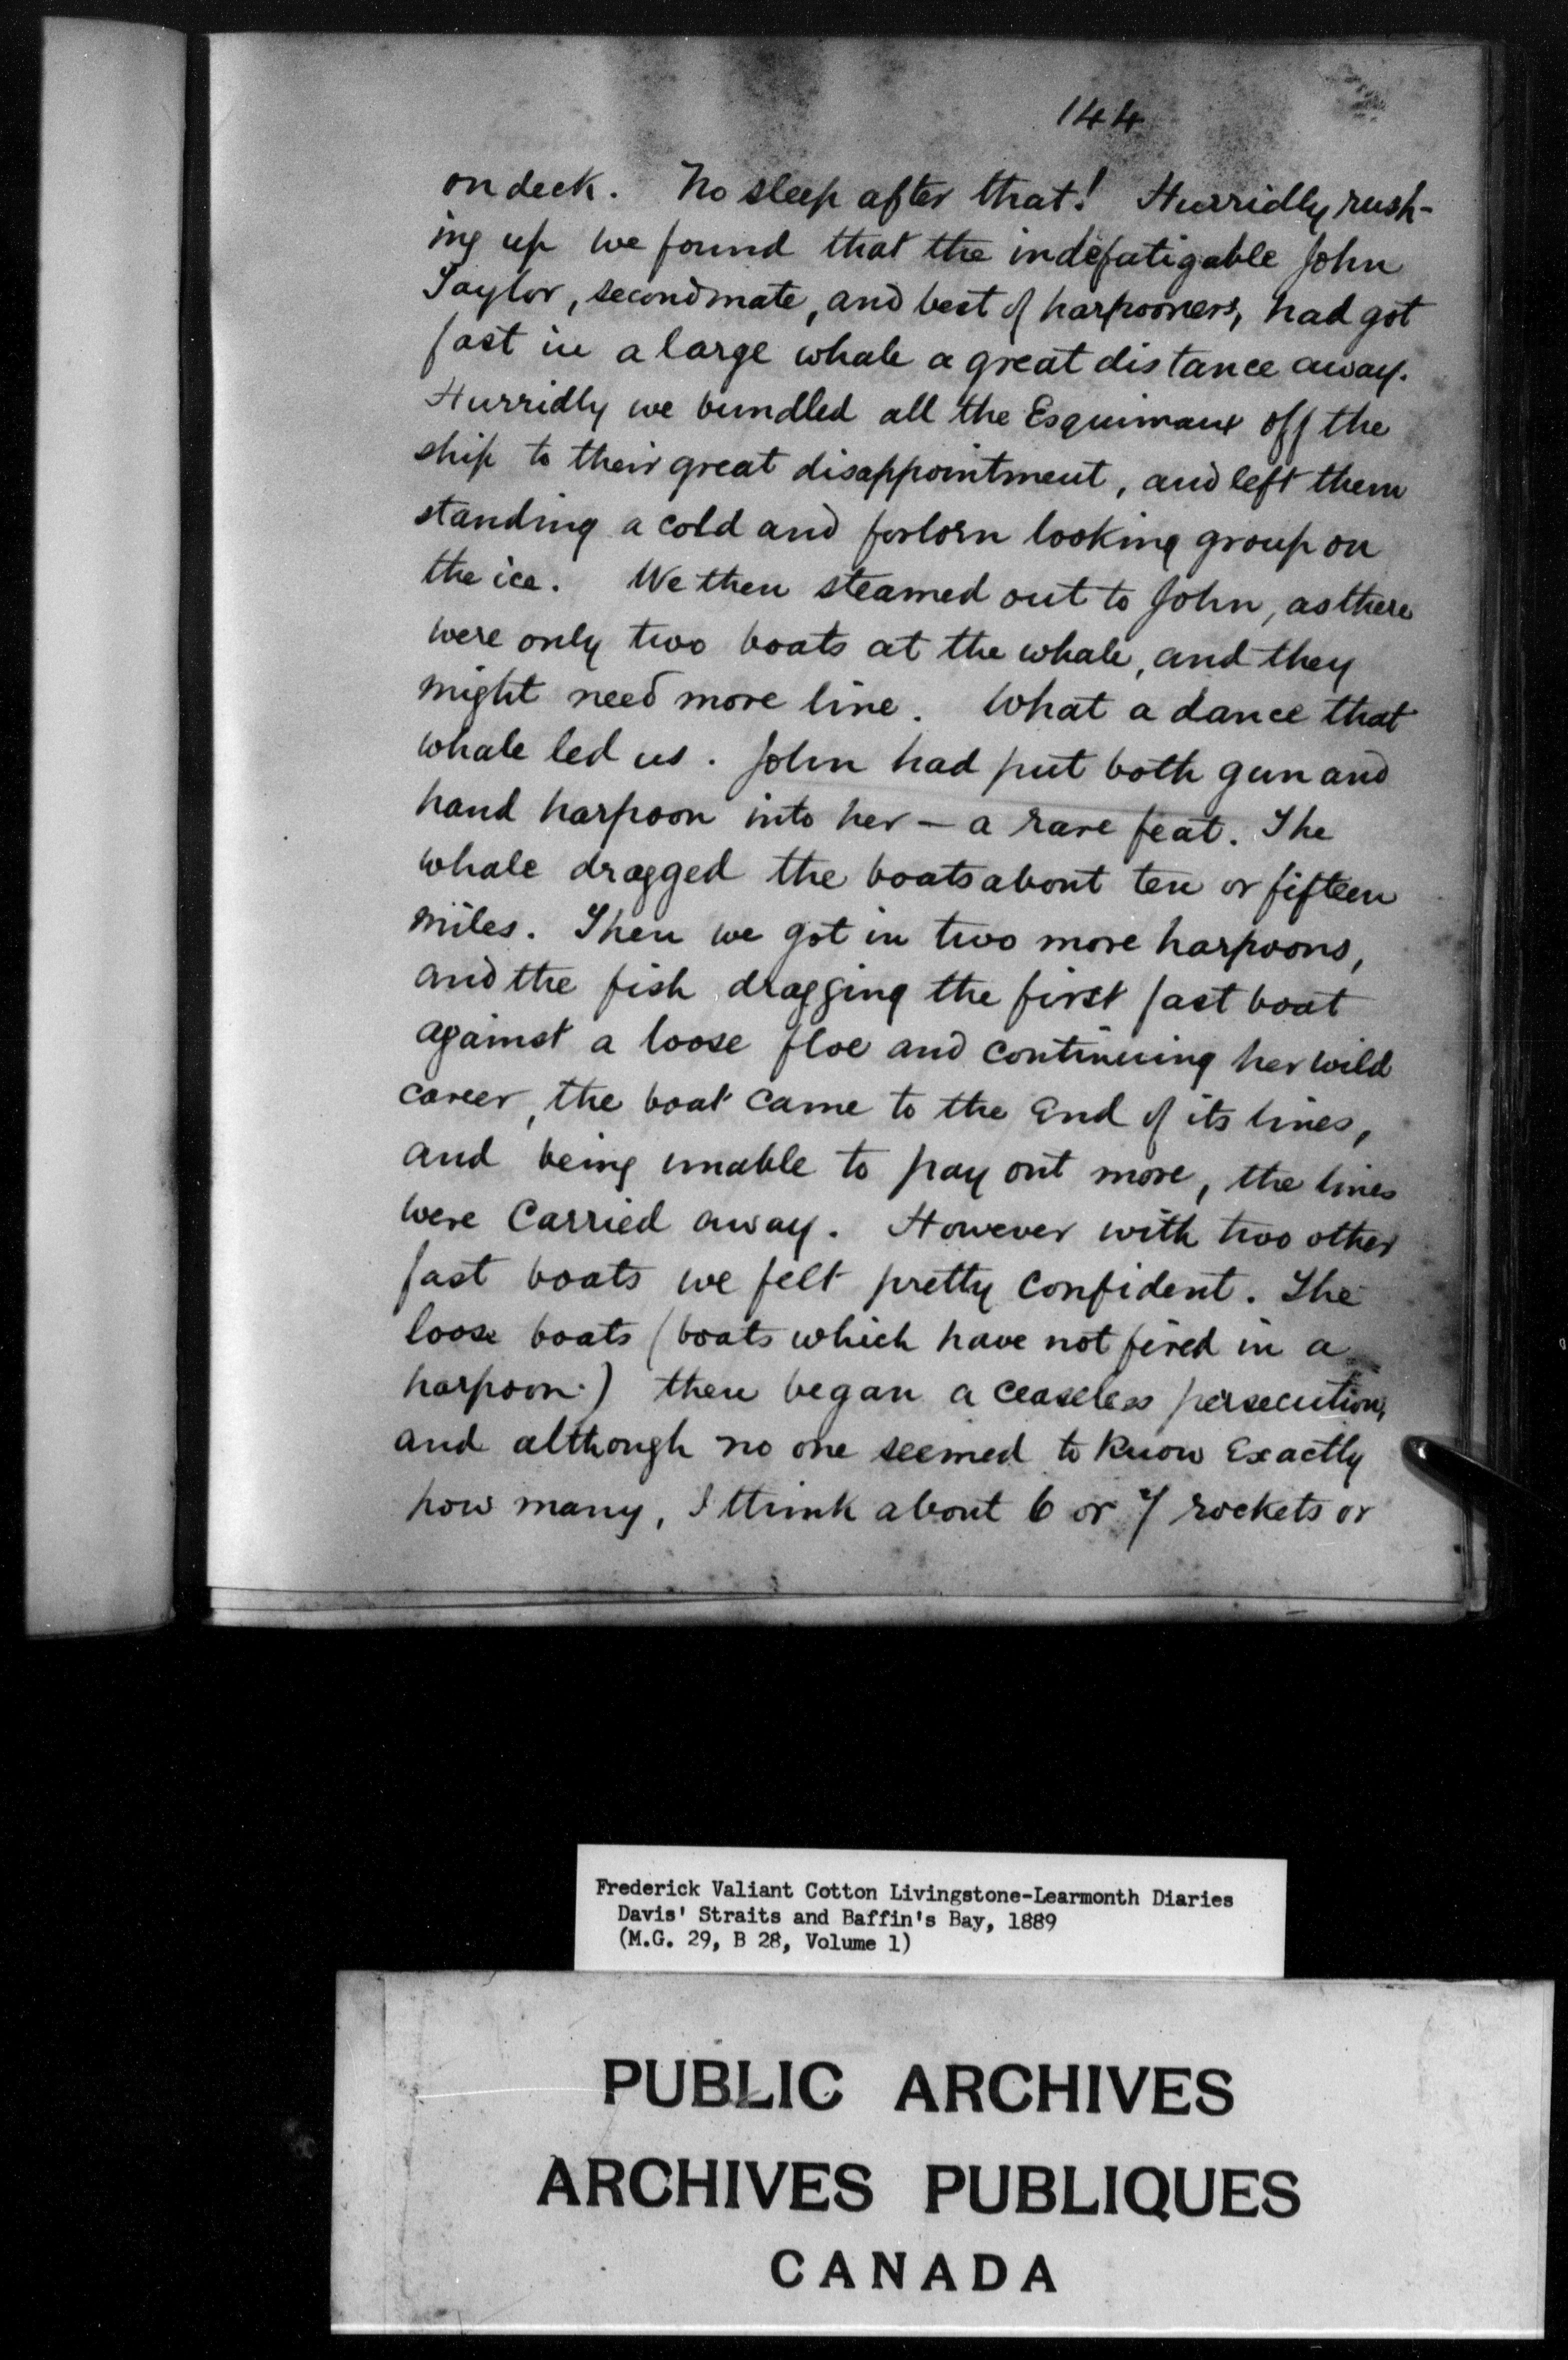 144
on deck. No sleep after that! Hurridly rush-
ing up we found that the indefatigable John
Taylor, second mate, and best of harpooners, had got
fast in a large whale a great distance away.
Hurridly we bundled all the Esquimaux off the
ship to their great disappointment, and left them
standing a cold and forlorn looking group on
the ice. We then steamed out to John, as there
were only two boats at the whale, and they
might need more line. What a dance that
whale led us. John had put both gun and
hand harpoon into her — a rare feat. The
whale dragged the boats about ten or fifteen
miles. Then we got in two more harpoons,
and the fish dragging the first fast boat
against a loose floe and continuing her wild
career, the boat came to the end of its lines,
and being unable to pay out more, the lines
were carried away. However with two other
fast boats we felt pretty confident. The
loose boats (boats which have not fired in a
harpoon.) then began a ceaseless persecution,
and although no one seemed to know exactly
how many, I think about 6 or 7 rockets or
Frederick Valiant Cotton Livingstone-Learmonth Diaries
Davis' Straits and Baffin's Bay, 1889
(M.G. 29, B 28, Volume 1)
PUBLIC ARCHIVES
ARCHIVES PUBLIQUES
CANADA